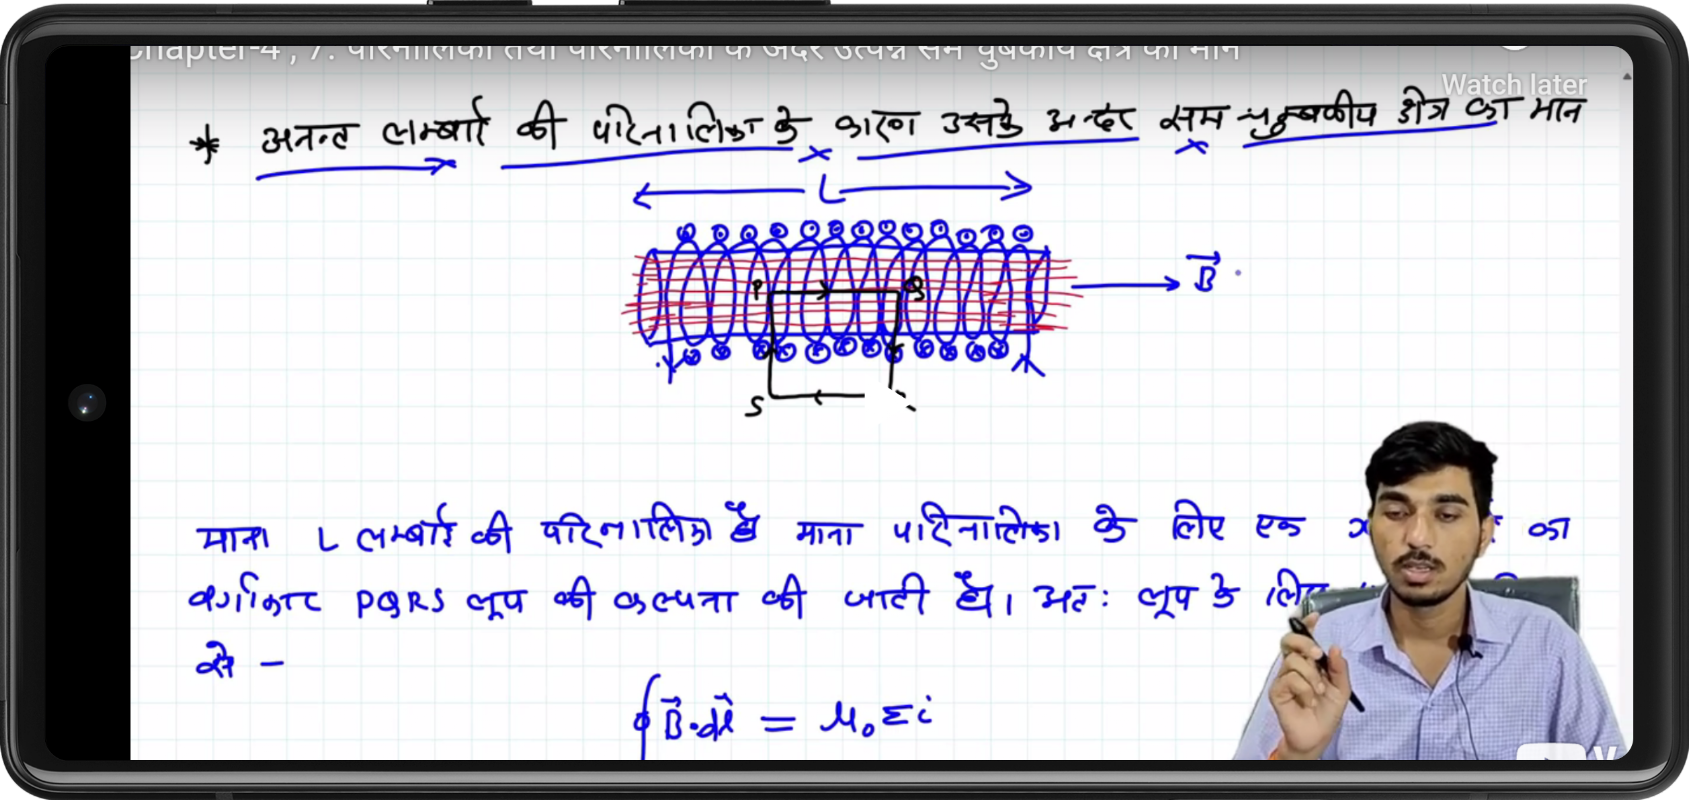 Chapter-4 , 7. परिनालिका तथा परिनालिका के अंदर उत्पन्न सम चुंबकीय क्षेत्र का मान
Watch later
* अनन्त लम्बाई की परिनालिका के कारण उसके अन्दर सम चुम्बकीय क्षेत्र का मान
L
P Q
B
S
माना L लम्बाई की परिनालिका है माना परिनालिका के लिए एक का
वर्गाकार PQRS लूप की कल्पना की जाती है। अतः लूप के लिए
से -
∮B⃗·dl⃗ = μ₀ Σi